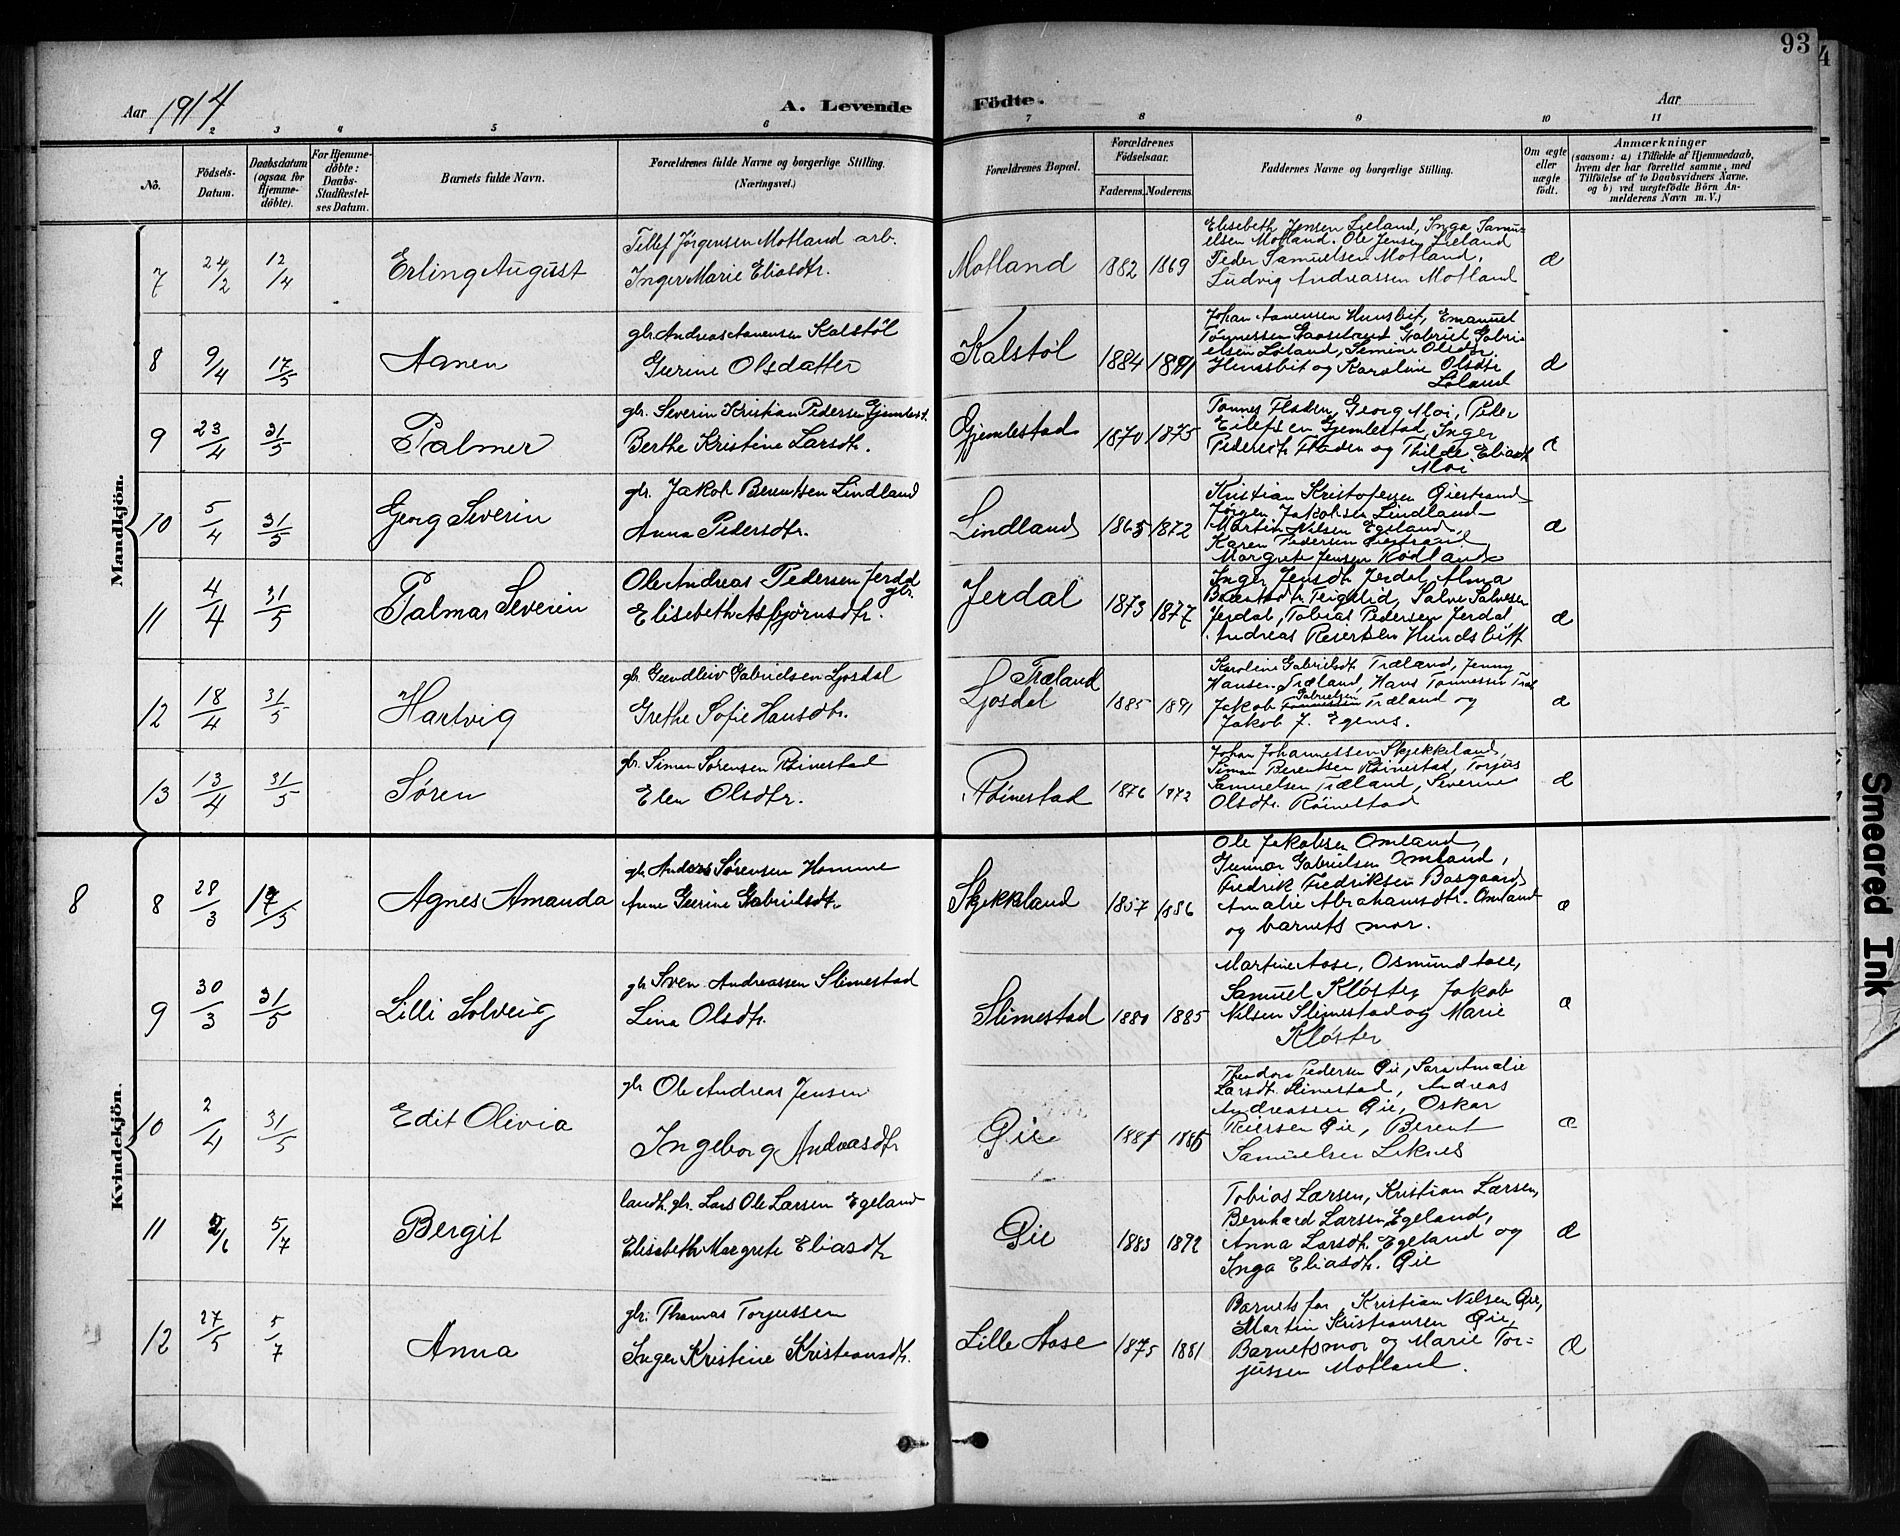 93
4
Aar 1914
A. Levende Födte.
Aar
2 3 4 5 6 7 8 9 10 11
No.
Födsels-
Datum.
Daabsdatum
(ogsaa for
Hjemme-
döbte).
For Hjemme-
döbte:
Daabs-
Stadfæstel-
ses Datum.
Barnets fulde Navn.
Forældrenes fulde Navne og borgerlige Stilling.
(Næringsvei.)
Forældrenes Bopæl.
Forældrenes
Födselsaar.
Faderens. Moderens.
Faddernes Navne og borgerlige Stilling.
Om ægte
eller
uægte
födt.
Anmærkninger
(saasom: a) i Tilfælde af Hjemmedaab,
hvem der har forrettet samme, med
Tilföielse af to Daabsvidners Navne,
og b) ved uægtefödte Börn An-
melderens Navn m. V.)
Mandkjön.
7 24/2 12/4 Erling August
Tellef Jørgensen Motland arb.
Inger Marie Eliasdtr.
Motland 1882 1869
Elisabeth Jensen Lieland, Inga Samu-
elsen Motland. Ole Jensen Lieland
Peder Samuelsen Motland,
Ludvig Andreassen Motland
æ
8 9/4 17/5 Aanen
gbr. Andreas Aanensen Kalstøl
Gurine Olsdatter
Kalstøl 1884 1891
Johan Aanensen Hunsbit, Emanuel
Tønnessen Gaaseland Gabriel Gabri-
elsen Løland, Semine Olsdtr.
Hunsbit og Karoline Olsdtr
Løland
æ
9 23/4 31/5 Palmer
gbr. Severin Kristian Pedersen Gjemlest.
Berthe Kristine Larsdtr.
Gjemlestad 1870 1875
Tonnes Fladen, Georg Moi, Peder
Eilefsen Gjemlestad, Inger
Pedersdtr Fladen og Thilde Eliasdtr
Moi
æ
10 5/4 31/5 Georg Severin
gbr. Jakob Berentsen Lindland
Anna Pedersdtr.
Lindland 1865 1872
Kristian Kristofersen Øiestrand
Jørgen Jakobsen Lindland
Martin Nilsen Egeland
Karen Pedersen Øiestrand
Margrete Jensen Rødland
æ
11 4/4 31/5 Palmar Severin
Ole Andreas Pedersen Jerdal
gbr.
Elisabeth Asbjørnsdtr.
Jerdal 1873 1877
Inger Jensdtr Jerdal, Alma
Berentsdtr Teigelid, Salve Salvesen
Jerdal, Tobias Pedersen Jerdal
Andreas Reiersen Hundsbitt
æ
12 18/4 31/5 Hartvig
gbr. Gundleiv Gabrielsen Ljosdal
Grethe Sofie Hansdtr.
Træland
Ljosdal 1885 1891
Karoline Gabrielsdtr Træland, Jenny
Hansen Træland, Hans Tønnessen Træl
Gabrielsen
Jakob Tønnessen Træland og
Jakob J. Egenes.
æ
13 13/4 31/5 Søren
gbr. Simon Sørensen Røinestad
Elen Olsdtr.
Røinestad 1876 1872
Johan Johannessen Skjekkeland,
Simon Berentsen Røinestad, Torjus
Samuelsen Træland, Severine
Olsdtr. Røinestad
æ
Kvindekjön.
8
8 28/3 17/5 Agnes Amanda
gbr. Anders Sørensen Homme
Anne Gurine Gabrielsdtr.
Skjekkland 1857 1886
Ole Jakobsen Omland,
Gunnar Gabrielsen Omland,
Fredrik Fredriksen Basgaard
Amalie Abrahamsdtr. Omland
og barnets mor.
æ
9 30/3 31/5 Lilli Solveig
gbr Sven Andreassen Slimestad
Lina Olsdtr.
Slimestad 1880 1885
Martine Aase, Osmund Aase,
Samuel Kløster, Jakob
Nilsen Slimestad og Marie
Kløster
æ
10 2/4 31/5 Edit Olivia
gbr Ole Andreas Jensen
Ingeborg Andreasdtr
Øie 1886
Theodora Pedersen Øie, Sara Amalie
Larsdtr. Slimestad, Andreas
Andreassen Øie, Oskar
Reiersen Øie, Berent
Samuelsen Liknes
æ
11 2/6 5/7 Bergit
landh. gbr. Lars Ole Larsen Egeland
Elisabeth Margrete Eliasdtr
Øie 1883 1892
Tobias Larsen, Kristian Larsen,
Bernhard Larsen Egeland,
Anna Larsdtr. Egeland og
Inga Eliasdtr. Øie
æ
12 27/5 5/7 Anna
gbr. Thomas Torjussen
Inger Kristine Kristiansdtr.
Lille Aase 1875 1881
Barnets far, Kristian Nilsen Øie,
Martin Kristiansen Øie,
Barnets mor og Marie Tor-
jussen Motland.
Æ
Smeared Ink